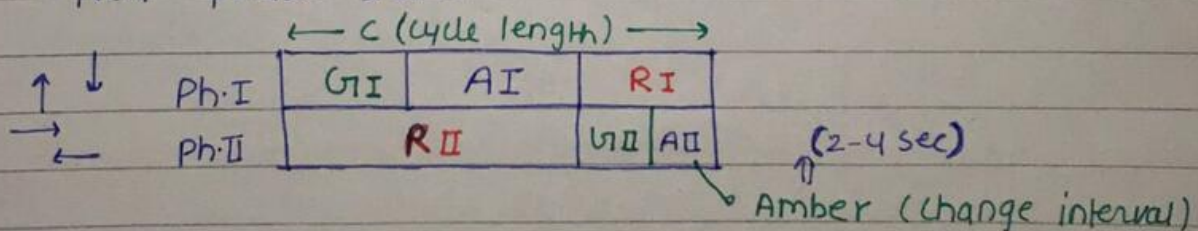 ← C (cycle length) →
↑ ↓ Ph.I GI AI RI
→ ← Ph.II R II GII AII (2-4 sec)
Amber (change interval)